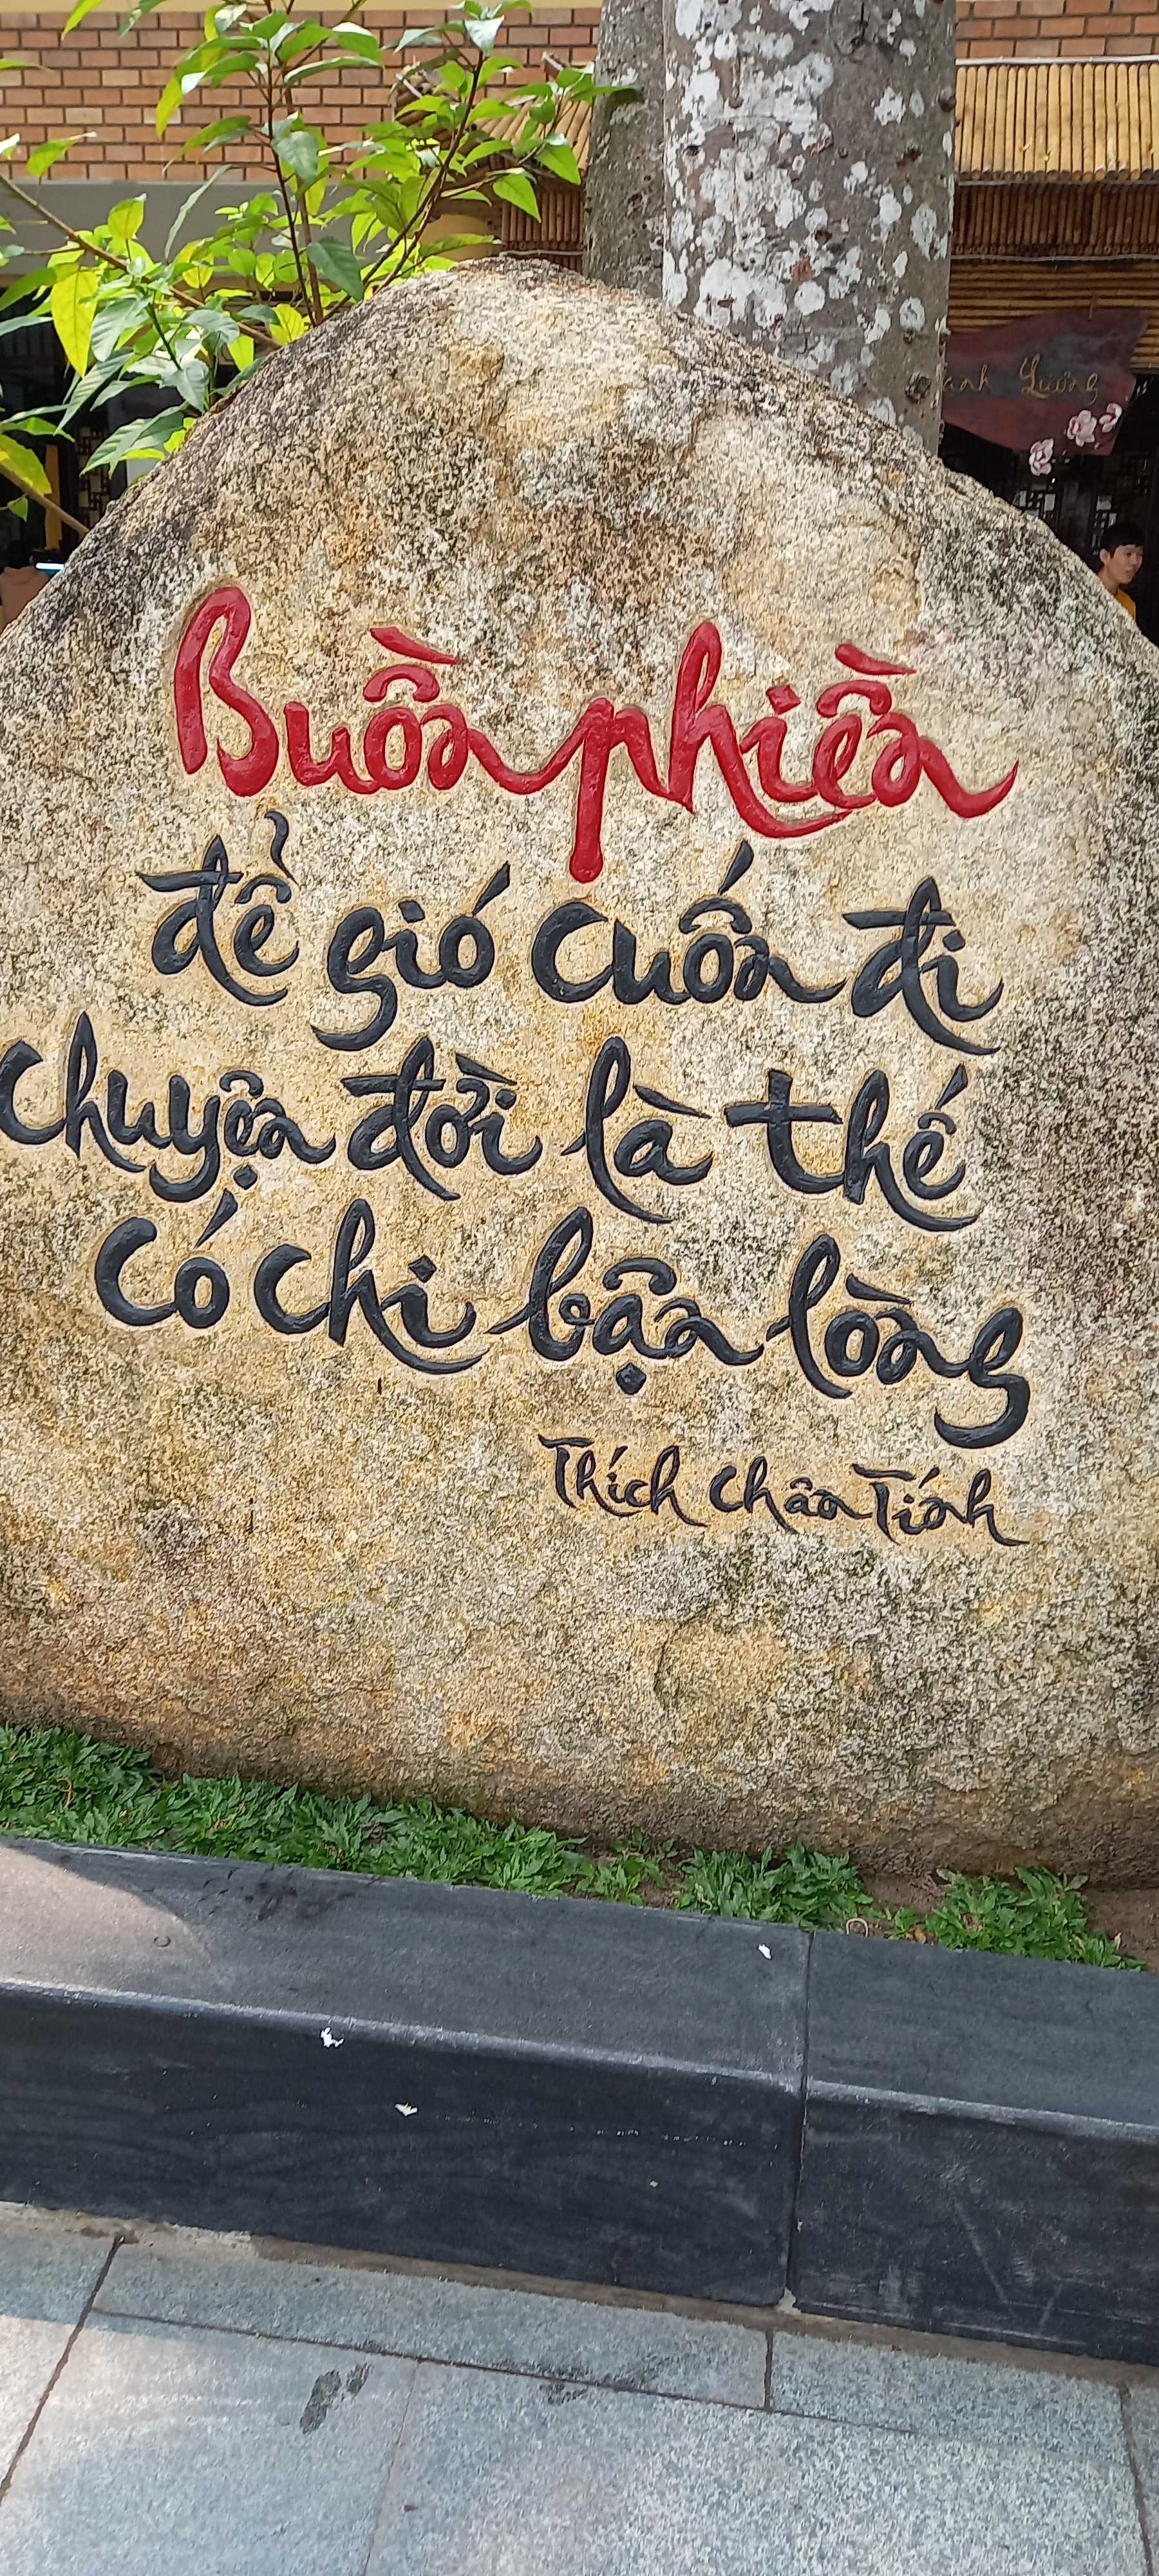 Lương
Buồn phiền
để gió cuốn đi
Chuyện đời là thế
Có chi bận lòng
Thích Chân Tính